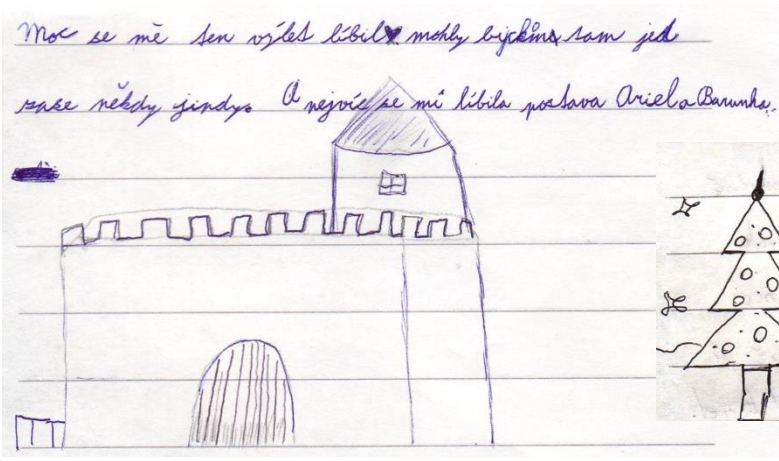 Moc se mě ten výlet líbil mohly byjckme tam jed
zase někdy jindy. A nejvíc se mi líbila postava Ariel a Barunka.